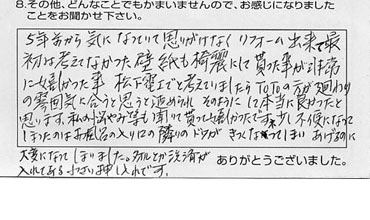 8.その他、どんなことでもかまいませんので、お感じになりました
ことをお聞かせ下さい。
5年前から気になっていて思いがけなくリフォーム出来て最
初は考えてなかった壁紙も綺麗にして貰った事が非常
に嬉しかった事 松下電工でと考えていましたらTOTOの方が廻わり
の雰囲気に合うと思うと進められ そのようにして本当に良かったと
思います。私の悩みや等も聞けて貰って嬉しかったです。少し不便になって
しまったのはお風呂の入り口の隣りのドアがきつくなってしまい あけるのに
大変になってしまいました。タオルとか洗済が
入れてある小さい押し入れです。
ありがとうございました。